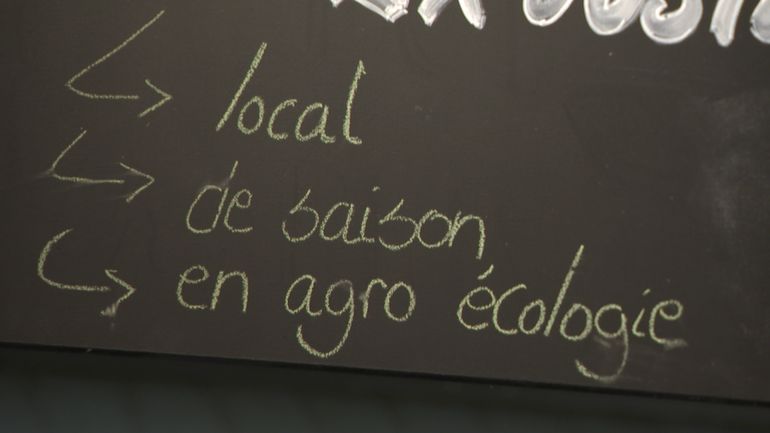 local
de saison
en agro écologie